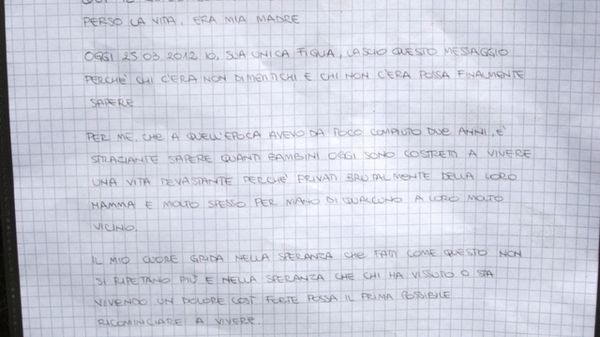 PERSO LA VITA, ERA MIA MADRE
OGGI 25.03.2012 IO, SUA UNICA FIGLIA, LASCIO QUESTO MESSAGGIO
PERCHE' CHI C'ERA NON DIMENTICHI E CHI NON C'ERA POSSA FINALMENTE
SAPERE
PER ME, CHE A QUELL'EPOCA AVEVO DA POCO COMPIUTO DUE ANNI, E'
STRAZIANTE SAPERE QUANTI BAMBINI OGGI SONO COSTRETTI A VIVERE
UNA VITA DEVASTANTE PERCHE' PRIVATI BRUTALMENTE DELLA LORO
MAMMA E MOLTO SPESSO PER MANO DI QUALCUNO A LORO MOLTO
VICINO.
IL MIO CUORE GRIDA NELLA SPERANZA CHE FATTI COME QUESTO NON
SI RIPETANO PIU' E NELLA SPERANZA CHE CHI HA VISSUTO O STA
VIVENDO UN DOLORE COSI' FORTE POSSA IL PRIMA POSSIBILE
RICOMINCIARE A VIVERE.